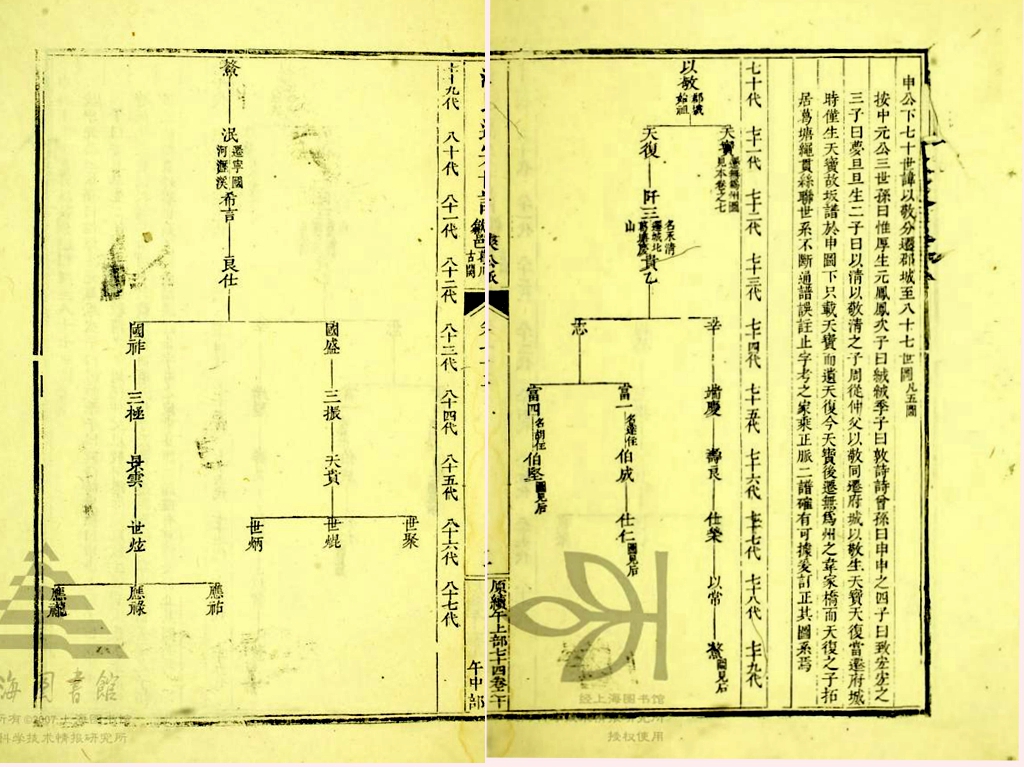 申公下七十世諱以敬分遷郡城至八十七世圖凡五圖
按中元公三世孫曰惟厚生元鳳鳳次子曰緘緘季子曰敦詩詩曾孫曰申申之四子曰致宏宏之
三子曰夢旦旦生二子曰以清以敬清之子周從仲父以敬同遷府城以敬生天寶天復當遷府城
時僅生天寶故坂譜於申圖下只載天寶而遺天復今天寶後遷無為州之韋家橋而天復之子拓
居葛塘繩貫絲聯世系不斷通譜誤註止字考之家乘正脈二譜確有可據爰訂正其圖系焉
七十代 七十一代 七十二代 七十三代 七十四代 七十五代 七十六代 七十七代 七十八代 七十九代
以敬 郡城始祖
天寶 見本卷之七
天復
阡三 名永清遷城北葛塘 山
貴乙
辛
端慶
壽良
仕榮
以常
鰲 圖見后
志
富一
伯成
仕仁 圖見后
富四
伯堅 圖見后
原續午上部七十四卷
午中部
七十九代 八十代 八十一代 八十二代 八十三代 八十四代 八十五代 八十六代 八十七代
鰲
泯 遷寧國河瀝溪
希言
良仕
國盛
三振
天貴
世聚
世焜
世炳
國祚
三極
景雲
世炫
應祐
應祿
應龍
海圖書館
所有©2007上海图书馆
科学技术情报研究所
经上海图书馆
授权使用